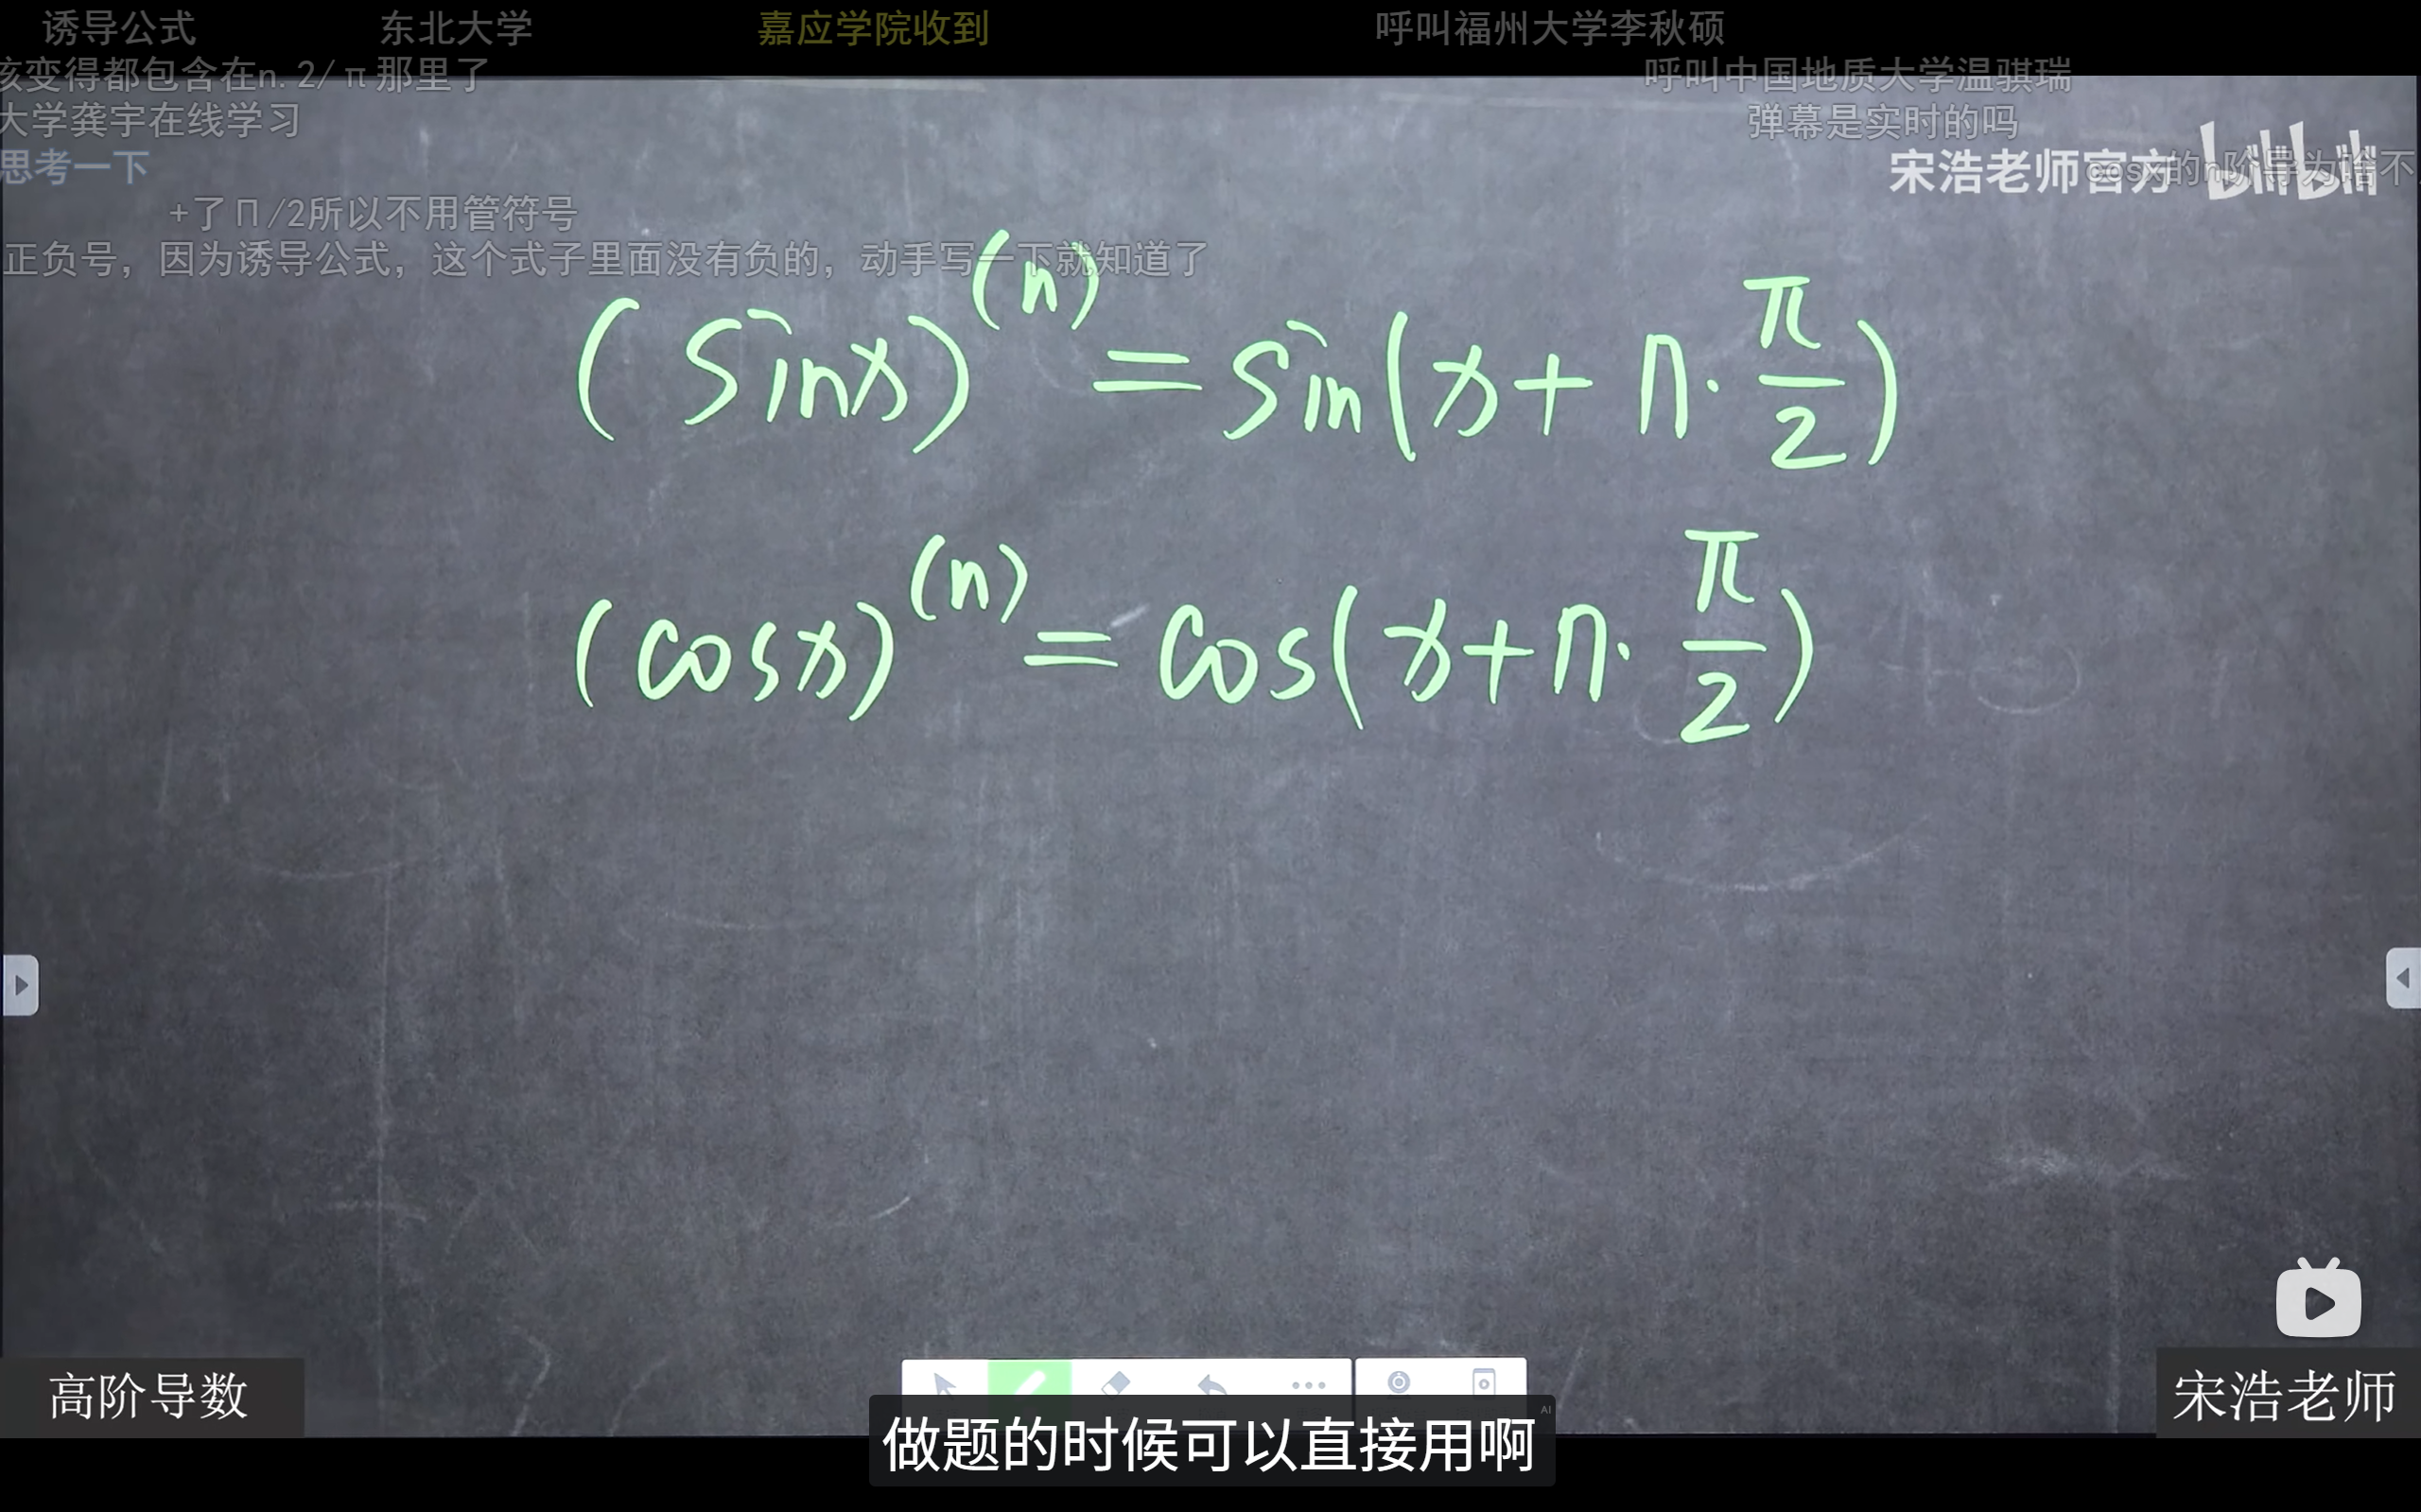 诱导公式 东北大学 嘉应学院收到 呼叫福州大学李秋硕
该变得都包含在n.2/π那里了 呼叫中国地质大学温骐瑞
大学龚宇在线学习 弹幕是实时的吗
思考一下 宋浩老师官方 bilibili cosx的n阶导为啥不
+了Π/2所以不用管符号
正负号，因为诱导公式，这个式子里面没有负的，动手写一下就知道了
(sinx)^(n) = sin(x + n·π/2)
(cosx)^(n) = cos(x + n·π/2)
高阶导数
宋浩老师
AI
做题的时候可以直接用啊